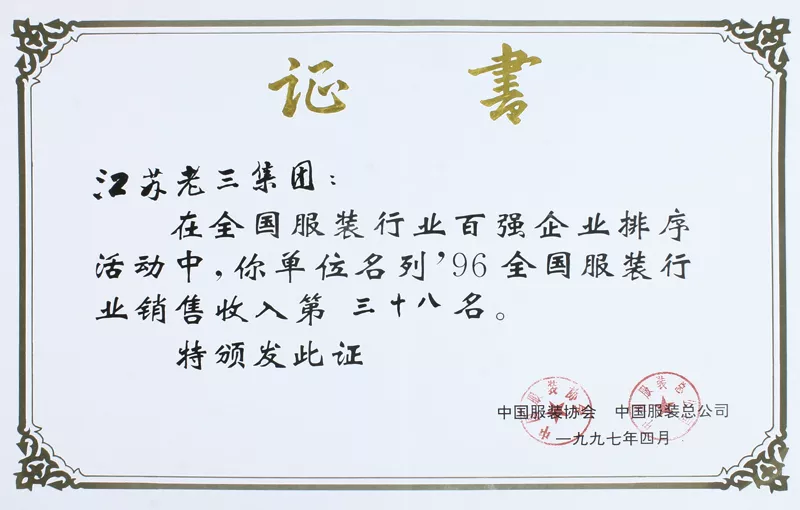 证書
江苏老三集团：
在全国服装行业百强企业排序
活动中，你单位名列’96全国服装行
业销售收入第 三十八名。
特颁发此证
中国服装协会 中国服装总公司
一九九七年四月